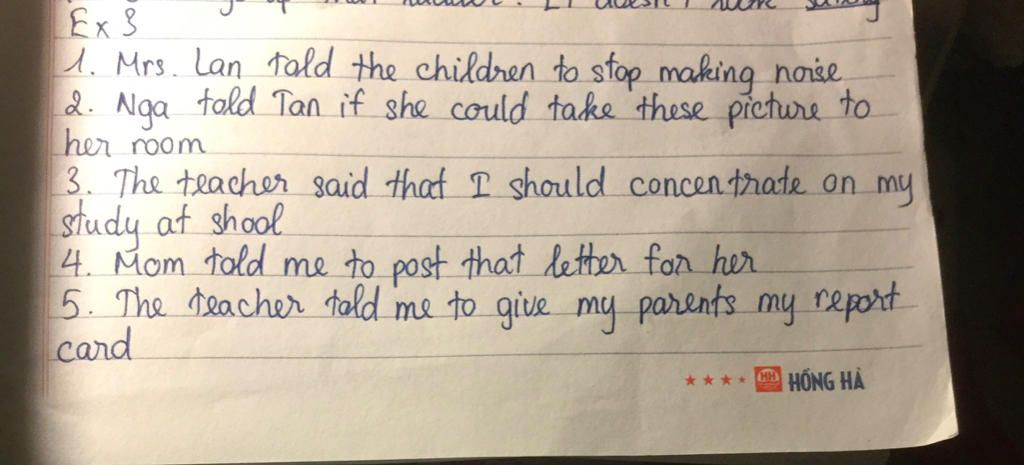 Ex 3
1. Mrs. Lan told the children to stop making noise
2. Nga told Tan if she could take these picture to
her room
3. The teacher said that I should concentrate on my
study at shool
4. Mom told me to post that letter for her
5. The teacher told me to give my parents my report
card
HH HỒNG HÀ